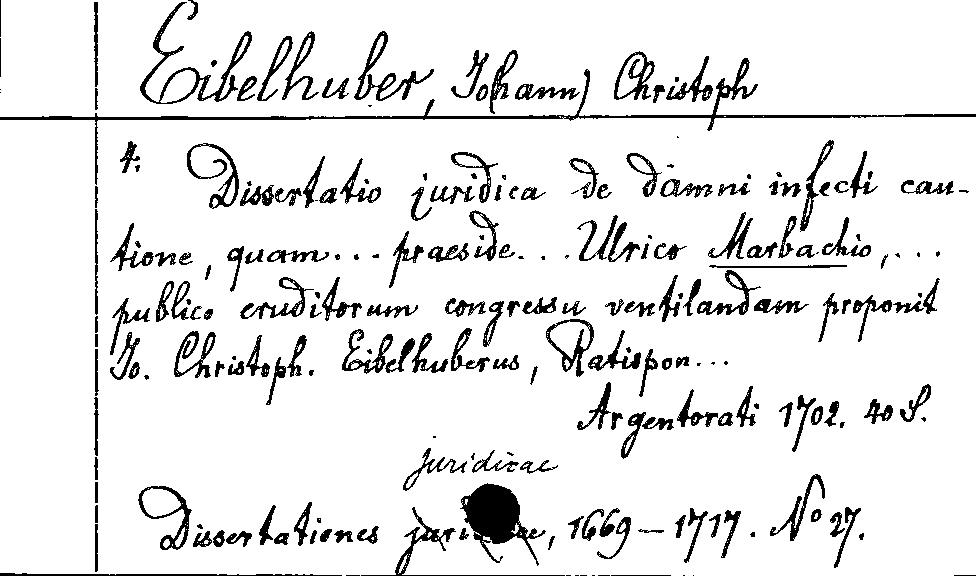 Eibelhuber, Jo(hann) Christoph
4. Dissertatio juridica de damni infecti cau-
tione, quam... praeside... Ulrico Marbachio,...
publico eruditorum congressu ventilandam proponit
Jo. Christoph. Eibelhuberus, Ratispon...
Argentorati 1702. 40 S.
juridicae
Dissertationes 1669-1717. No 27.